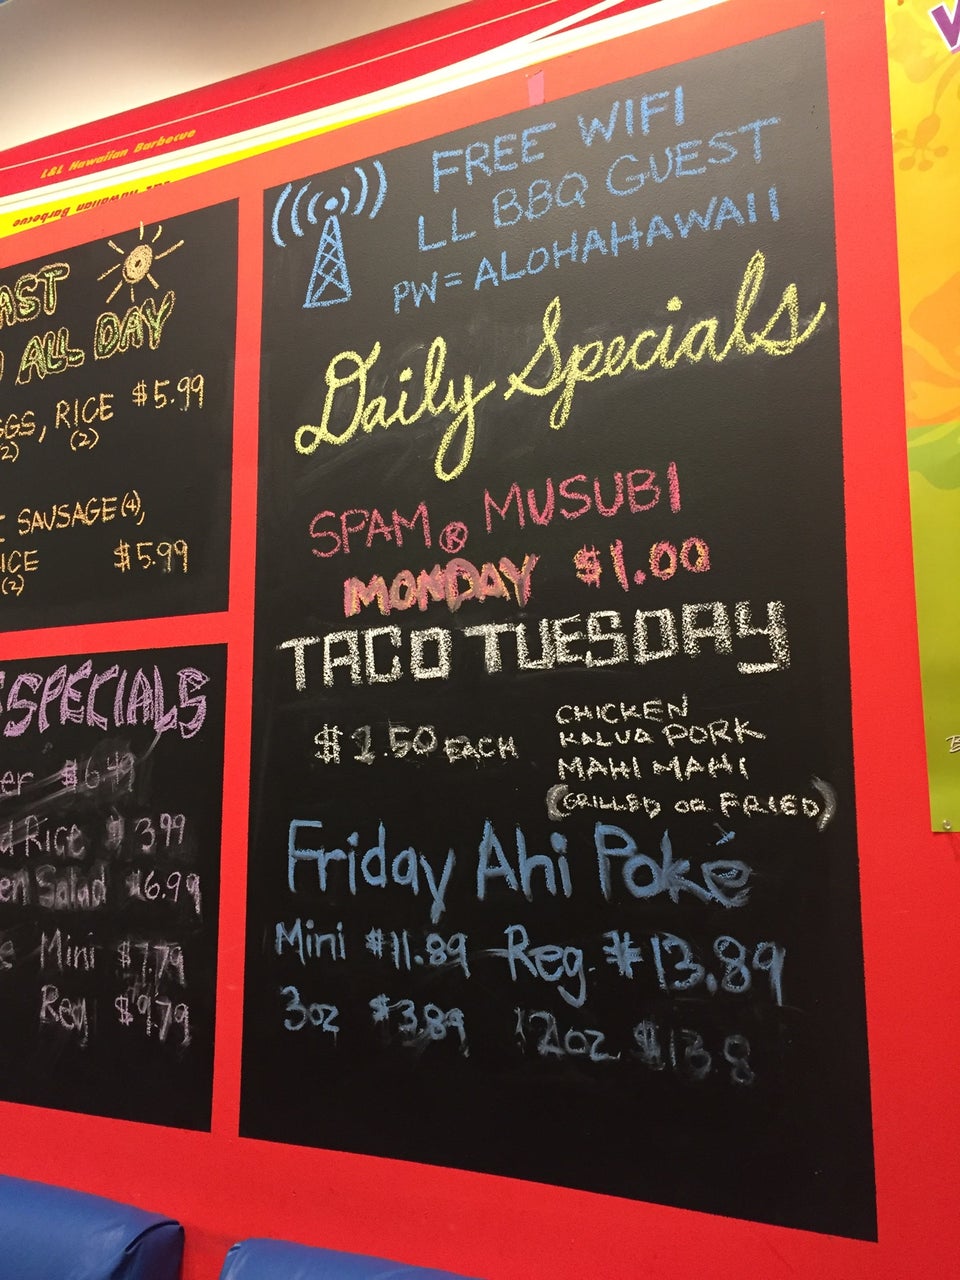 L&L Hawaiian Barbecue
L&L Hawaiian Barbecue
AST
ALL DAY
GGS, RICE $5.99
(2) (2)
SAUSAGE (4),
ICE $5.99
(2)
SPECIALS
er $6.49
d Rice $3.99
en Salad $6.99
e Mini $7.79
Reg $9.79
FREE WIFI
LL BBQ GUEST
PW=ALOHAHAWAII
Daily Specials
SPAM® MUSUBI
MONDAY $1.00
TACO TUESDAY
$2.50 EACH
CHICKEN
KALUA PORK
MAHI MAHI
(GRILLED OR FRIED)
Friday Ahi Poké
Mini $11.89 Reg. $13.89
3oz $3.89 12oz $13.8